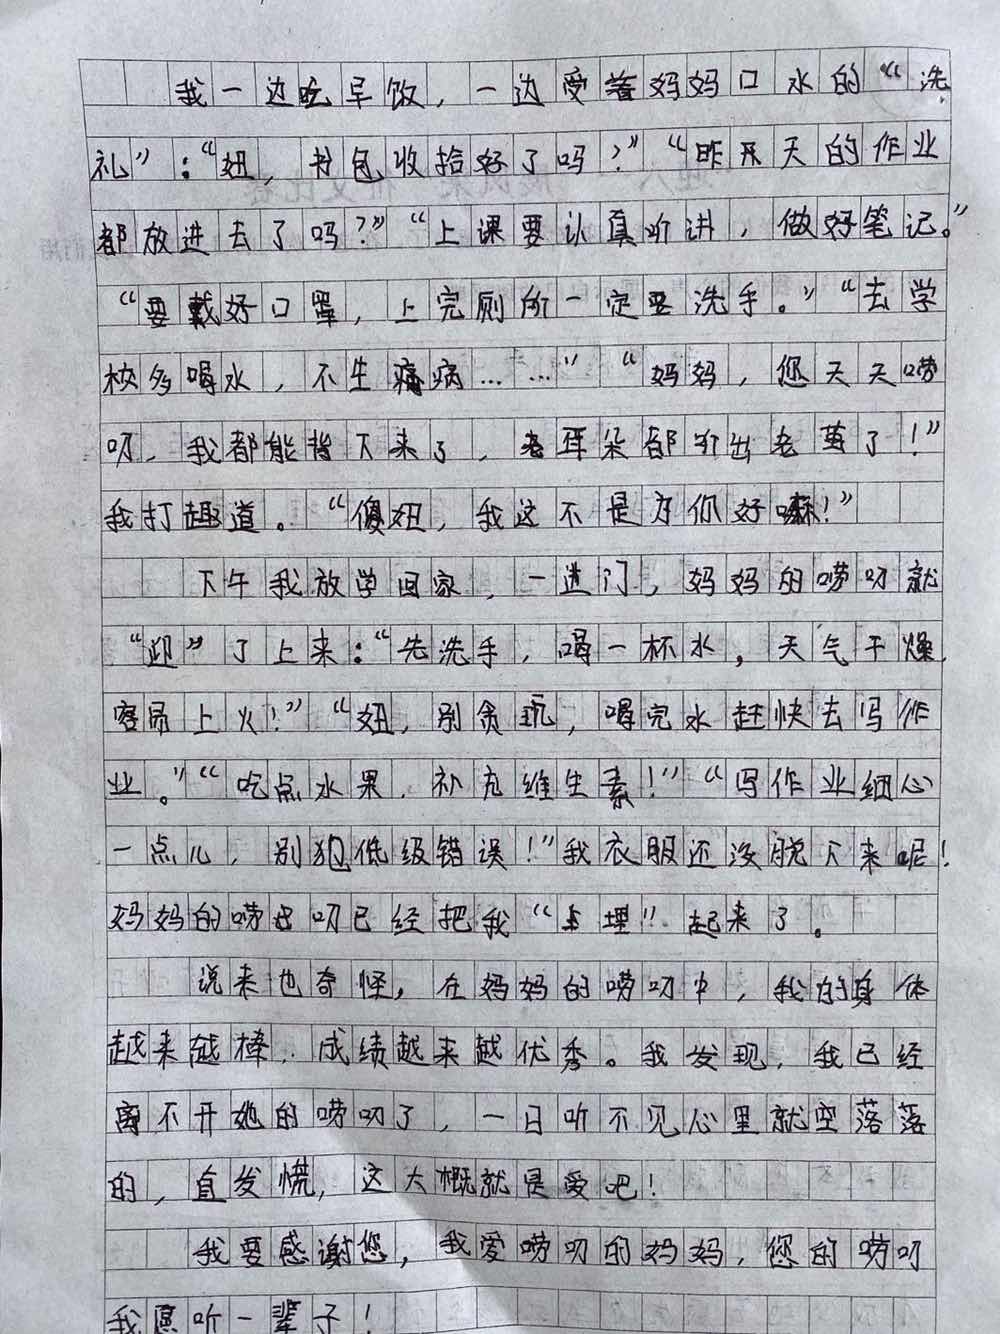 我一边吃早饭，一边受着妈妈口水的“洗
礼”：“妞，书包收拾好了吗？”“昨天的作业
都放进去了吗？”“上课要认真听讲，做好笔记。”
“要戴好口罩，上完厕所一定要洗手。”“去学
校多喝水，不生病……”“妈妈，您天天唠
叨，我都能背下来了，耳朵都听出老茧了！”
我打趣道。“傻妞，我这不是为你好嘛！”
下午我放学回家，一进门，妈妈的唠叨就
“迎”了上来：“先洗手，喝一杯水，天气干燥，
容易上火！”“妞，别贪玩，喝完水赶快去写作
业。”“吃点水果，补充维生素！”“写作业细心
一点儿，别犯低级错误！”我衣服还没脱下来呢！
妈妈的唠叨已经把我“埋”起来了。
说来也奇怪，在妈妈的唠叨中，我的身体
越来越棒，成绩越来越优秀。我发现，我已经
离不开她的唠叨了，一日听不见心里就空落落
的，直发慌，这大概就是爱吧！
我要感谢您，我爱唠叨的妈妈，您的唠叨
我愿听一辈子！